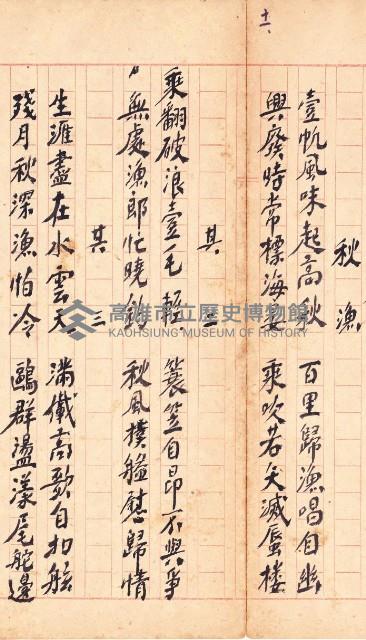 十六
秋漁
壹帆風味起高秋 百里歸漁唱自幽
興廢時常標海 乘吹若矢滅蜃楼
其二
乘翻破浪壹毛輕 簑笠自昂不與爭
無處漁郎忙曉 秋風樸艋慰歸情
其三
生涯盡在水雲天 滿儎高歌自扣舷
殘月秋深漁怕冷 鷗群盪漾尾舵邊
高雄市立歷史博物館
KAOHSIUNG MUSEUM OF HISTORY